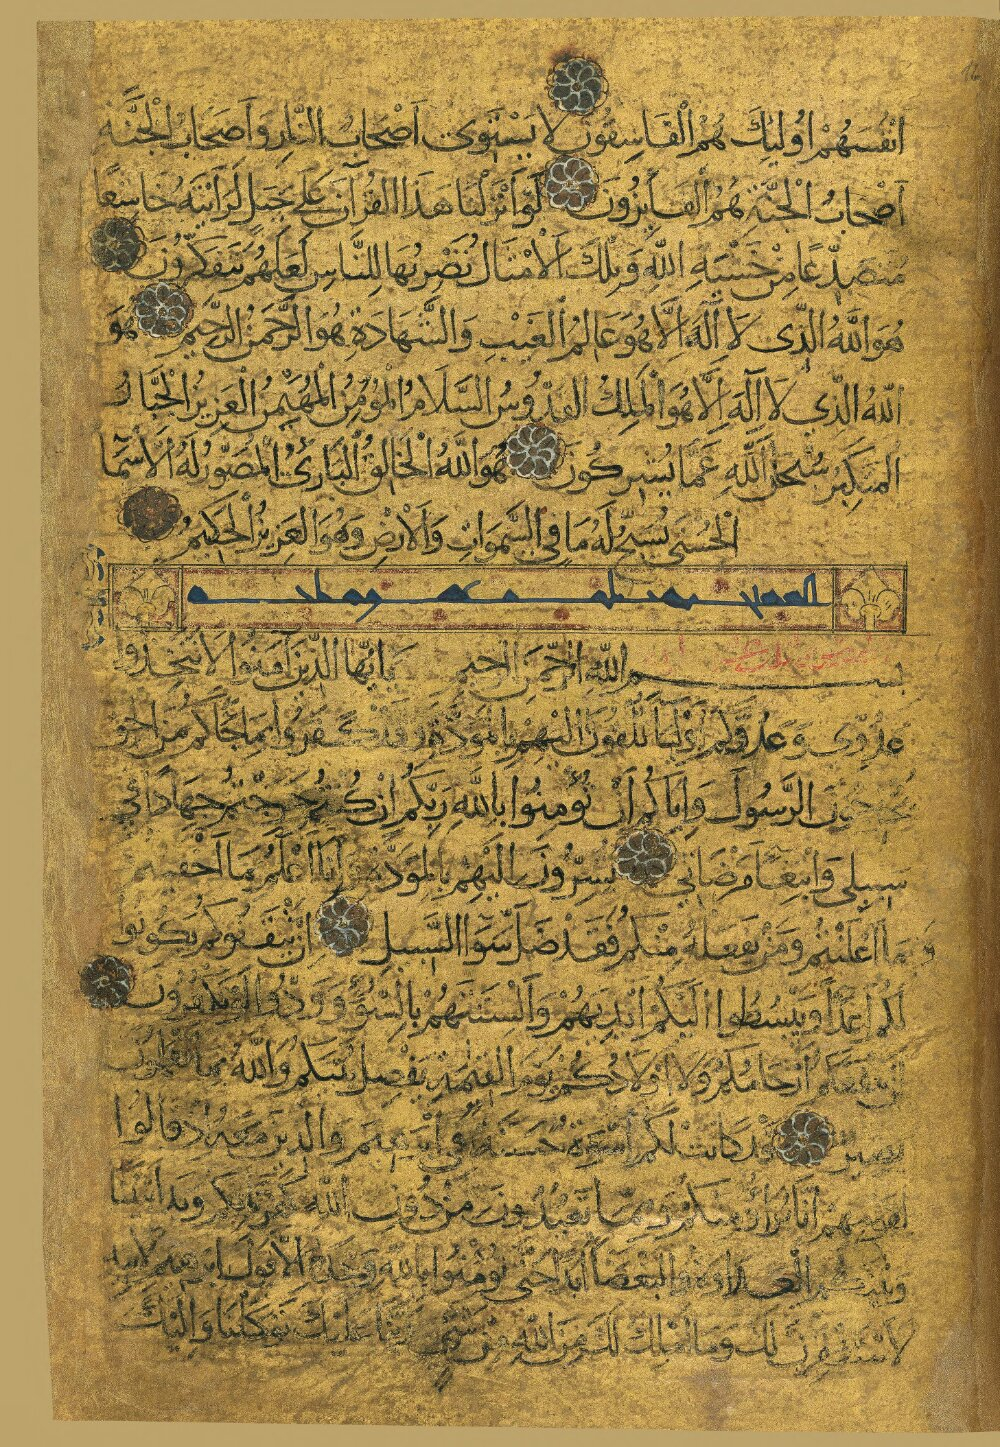 أنفسهم أولئك هم الفاسقون لا يستوي أصحاب النار وأصحاب الجنة
أصحاب الجنة هم الفايزون لو أنزلنا هذا القرآن على جبل لرأيته خاشعا
متصدعا من خشية الله وتلك الأمثال نضربها للناس لعلهم يتفكرون
هو الله الذي لا إله إلا هو عالم الغيب والشهادة هو الرحمن الرحيم هو
الله الذي لا إله إلا هو الملك القدوس السلام المؤمن المهيمن العزيز الجبار
المتكبر سبحن الله عما يشركون هو الله الخالق البارئ المصور له الأسما
الحسنى يسبح له ما في السموات والأرض وهو العزيز الحكيم
بسم الله الرحمن الرحيم يا أيها الذين آمنوا لا تتخذوا
عدوي وعدوكم أوليا تلقون إليهم بالمودة وقد كفروا بما جاكم من الحق
يخرجون الرسول وإياكم أن تؤمنوا بالله ربكم إن كنتم خرجتم جهادا في
سبيلي وابتغا مرضاتي تسرون إليهم بالمودة وأنا أعلم بما أخفيتم
وما أعلنتم ومن يفعله منكم فقد ضل سوا السبيل إن يثقفوكم يكونوا
لكم أعدا ويبسطوا إليكم أيديهم وألسنتهم بالسوء وودوا لو تكفرون
لن تنفعكم أرحامكم ولا أولادكم يوم القيمة يفصل بينكم والله بما تعملون
بصير قد كانت لكم أسوة حسنة في إبرهيم والذين معه إذ قالوا
لقومهم إنا برآؤا منكم ومما تعبدون من دون الله كفرنا بكم وبدا بيننا
وبينكم العداوة والبغضا أبدا حتى تؤمنوا بالله وحده إلا قول إبرهيم لأبيه
لأستغفرن لك وما أملك لك من الله من شي ربنا عليك توكلنا وإليك